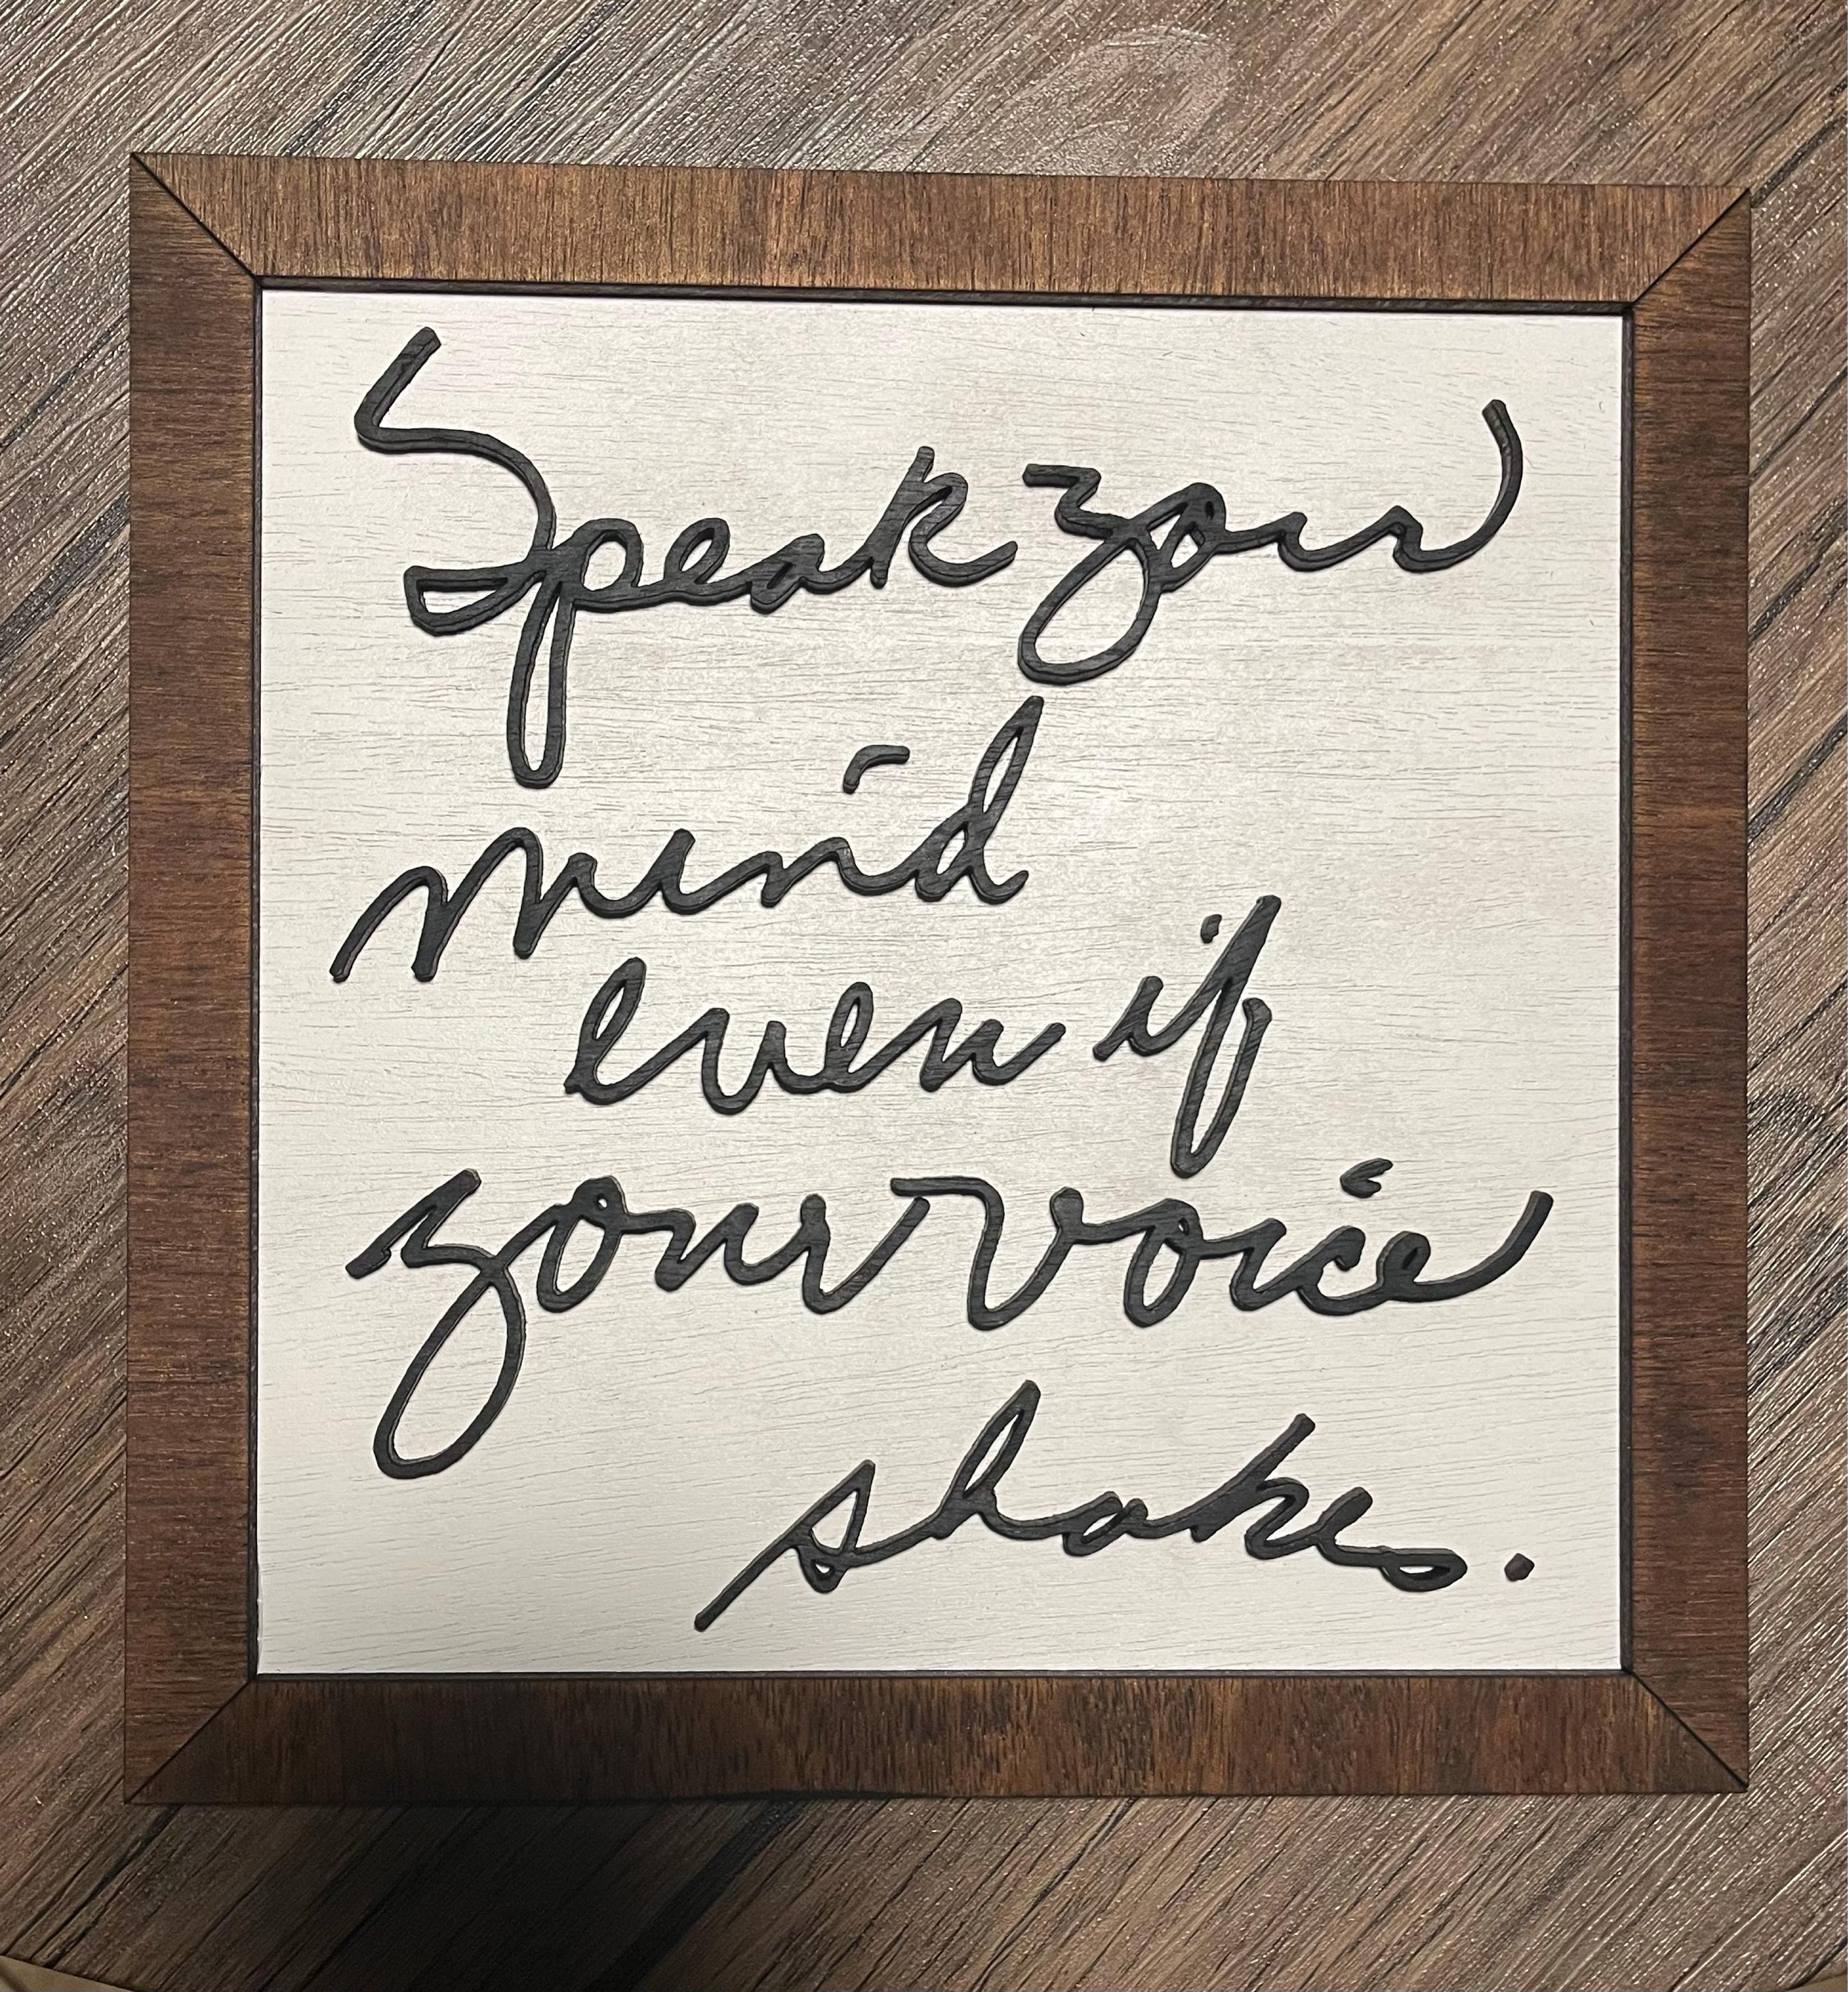 Speak your
mind
even if
your voice
shakes.